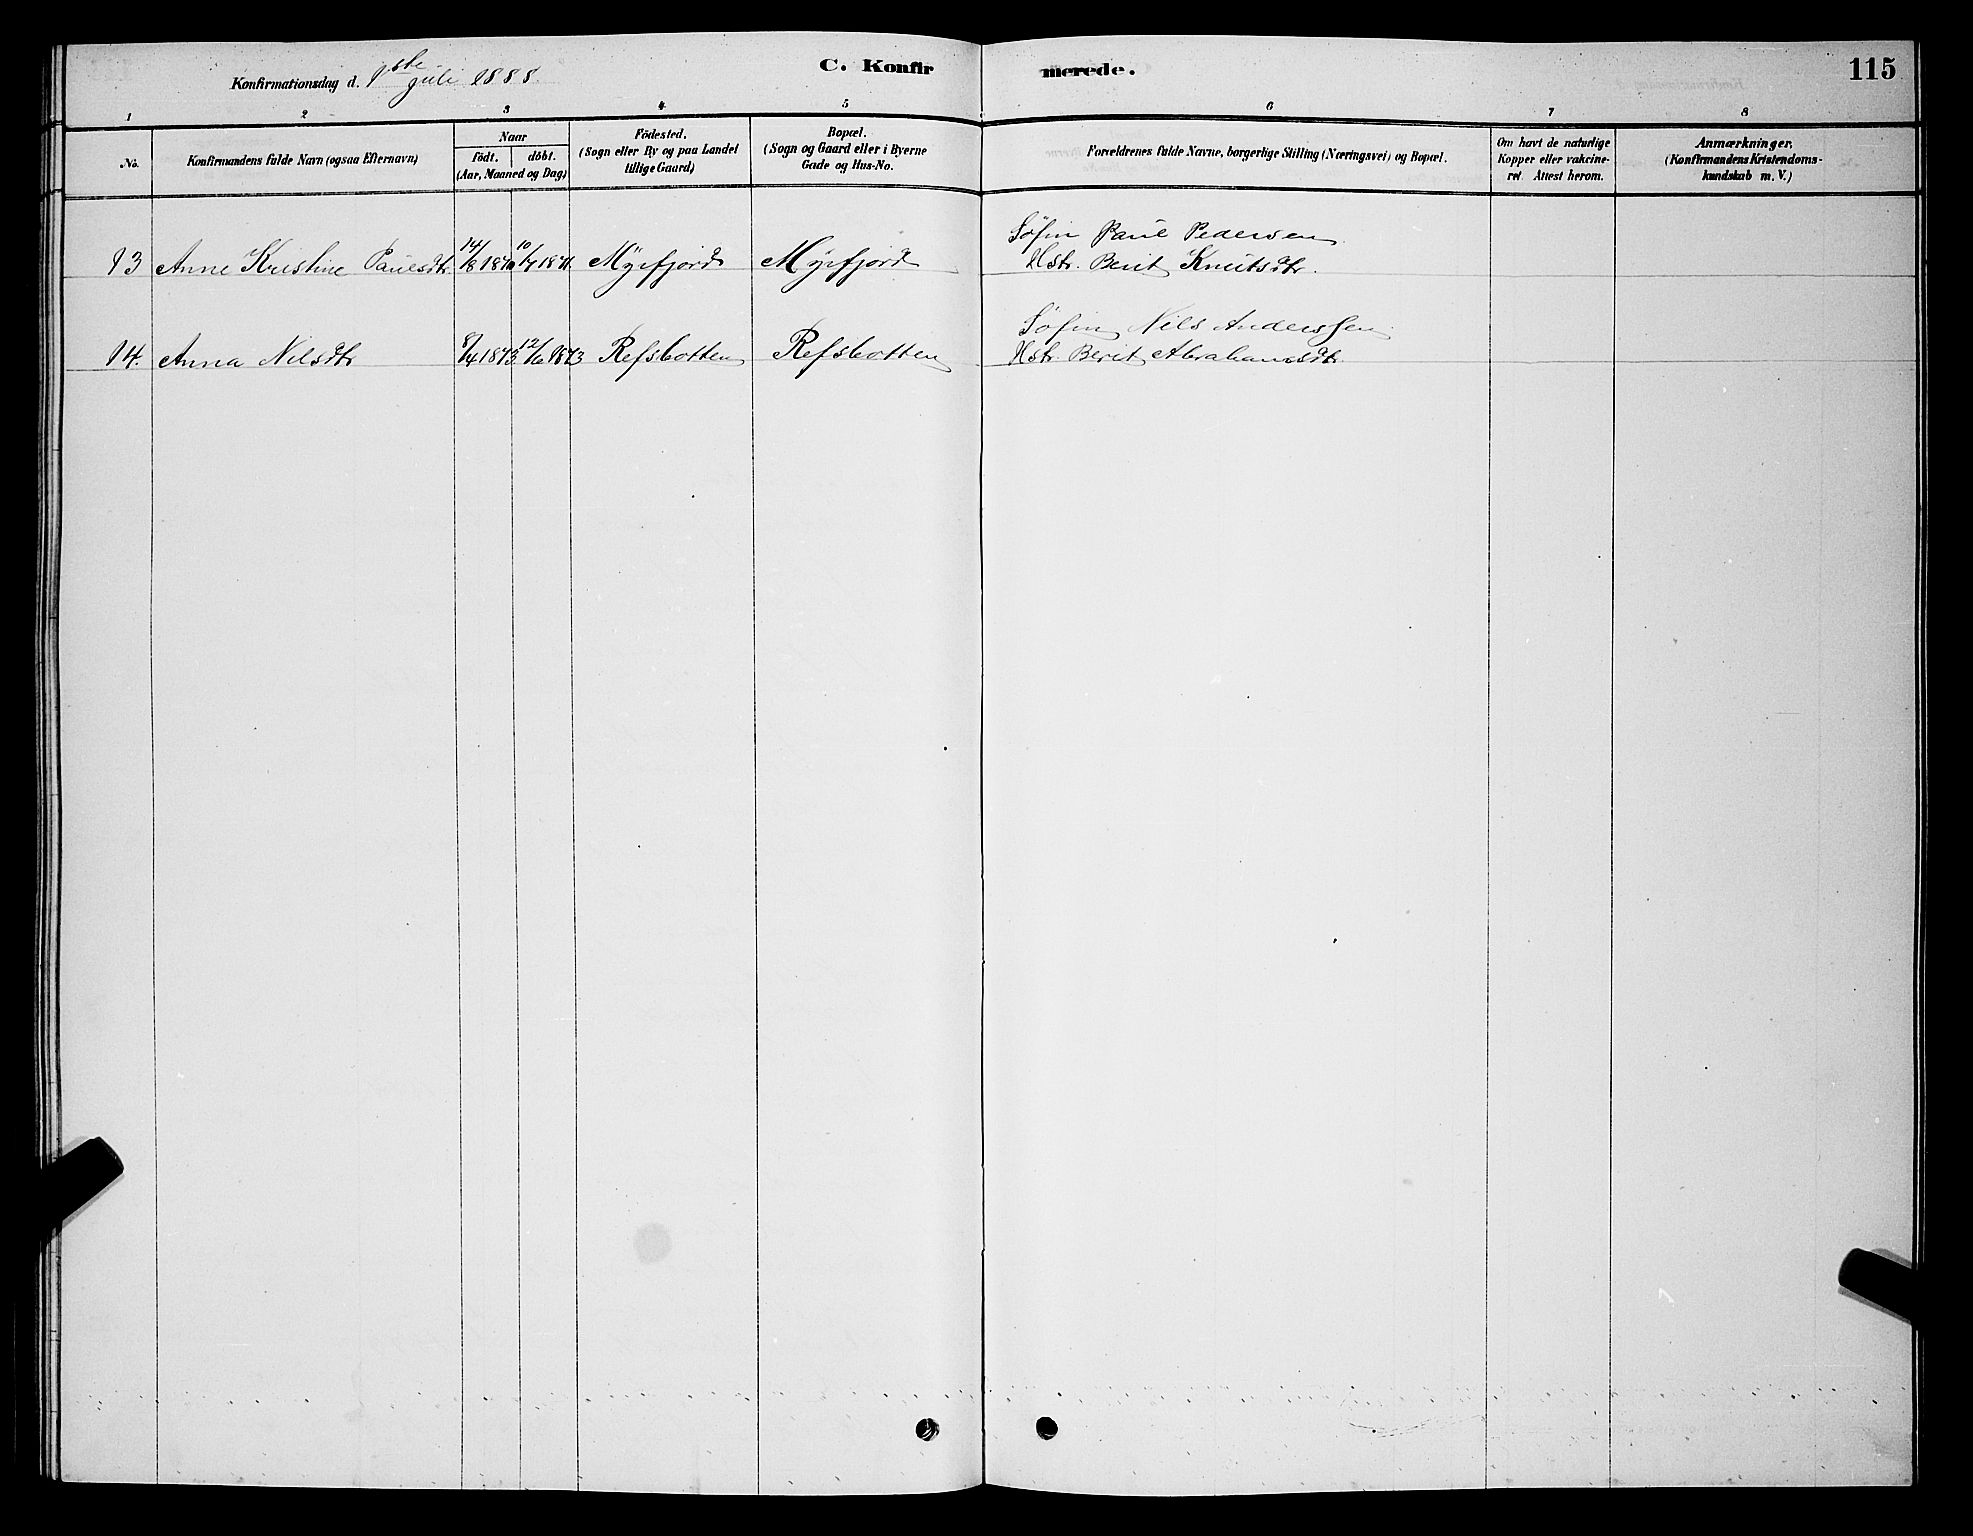 C. Konfirmerede.
115
Konfirmationsdag d. 1ste Juli 1888.
1 2 3 4 5 6 7 8
No.
Konfirmandens fulde Navn (ogsaa Efternavn)
Naar
födt. döbt.
(Aar, Maaned og Dag)
Födested.
(Sogn eller By og paa Landet
tillige Gaard)
Bopæl.
(Sogn og Gaard eller i Byerne
Gade og Hus-No.
Forældrenes fulde Navne, borgerlige Stilling (Næringsvei) og Bopæl.
Om havt de naturlige
Kopper eller vakcine-
ret. Attest herom.
Anmærkninger.
(Konfirmandens Kristendoms-
kundskab m. V.)
Söfin Paul Pedersen
13 Anne Kristine Paulsdtr. 14/8 1870 10/7 1871. Myrfjord Myrfjord Hstr. Berit Knutsdtr.
Söfin Nils Anderssen
14. Anna Nilsdtr 8/4 1873 12/6 1873 Refsbotten Refsbotten Hstr. Berit Abrahamsdtr.